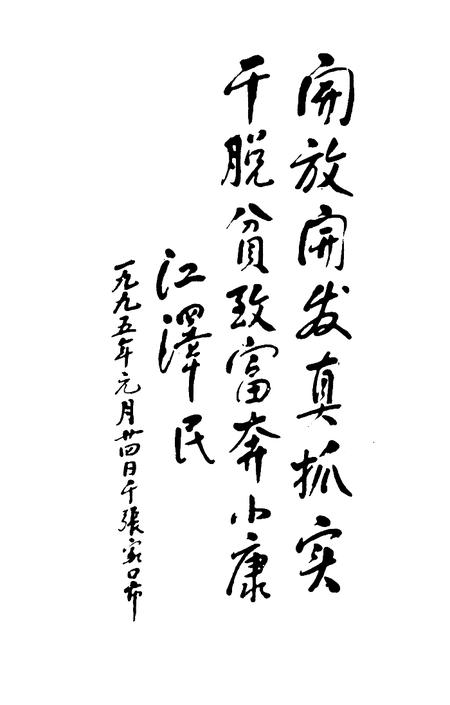 開放開发真抓实
干脱貧致富奔小康
江澤民
一九九五年元月廿四日于張家口市